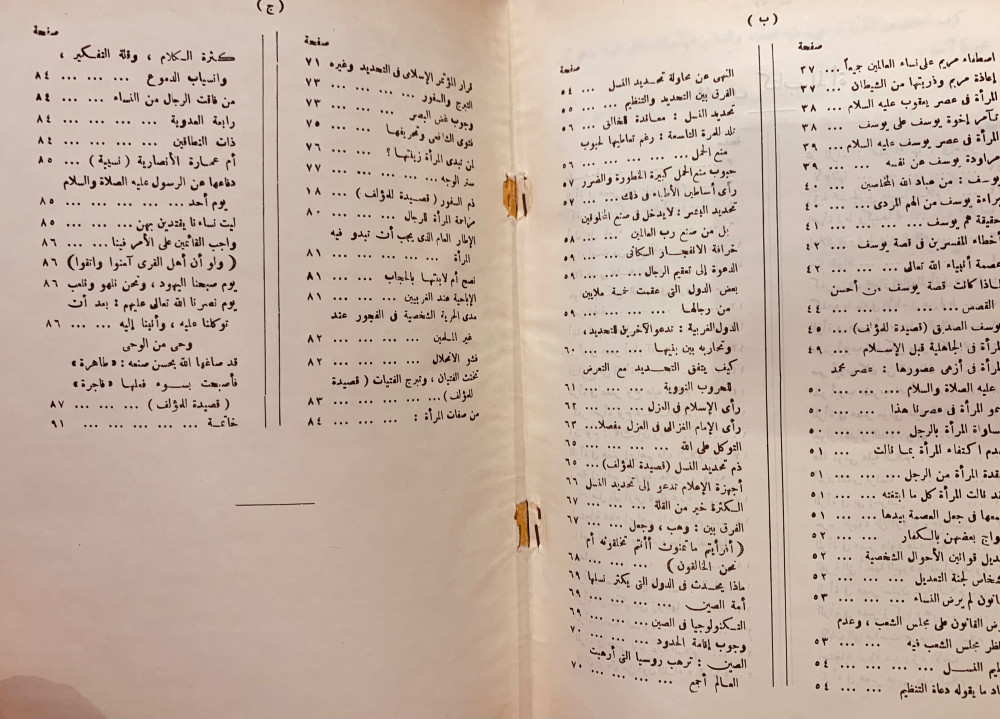 (ب)
صفحة
اصطفاء مريم على نساء العالمين جميعاً ... ٣٧
إعاذة مريم وذريتها من الشيطان ... ٣٧
المرأة فى عصر يعقوب عليه السلام ... ٣٨
تآمر إخوة يوسف على يوسف ... ٣٨
المرأة فى عصر يوسف عليه السلام ... ٣٩
مراودة يوسف عن نفسه ... ... ٣٩
يوسف : من عباد الله المخلصين ... ٤٠
براءة يوسف من الهم المردى ... ... ٤٠
حقيقة هم يوسف ... ... ... ٤١
أخطاء المفسرين فى قصة يوسف ... ٤٢
عصمة أنبياء الله تعالى ... ... ... ٤٢
لماذا كانت قصة يوسف من أحسن
القصص ... ... ... ... ... ٤٤
يوسف الصديق (قصيدة للمؤلف) ... ٤٥
المرأة فى الجاهلية قبل الإسلام ... ٤٩
المرأة فى أزهى عصورها : عصر محمد
عليه الصلاة والسلام ... ... ... ٥٠
المرأة فى عصرنا هذا ... ... ٥٠
مساواة المرأة بالرجل ... ... ... ٥٠
عدم اكتفاء المرأة بما نالت ... ٥١
المرأة من الرجل ... ... ٥١
نالت المرأة كل ما ابتغته ... ... ٥١
فى جعل العصمة بيدها ... ... ٥١
زواج بعضهن بالكفار ... ... ٥٢
تعديل قوانين الأحوال الشخصية ... ٥٢
أشخاص لجنة التعديل ... ... ... ٥٢
قانون لم يرض النساء ... ... ... ٥٣
عرض القانون على مجلس الشعب ، وعدم
نظر مجلس الشعب فيه ... ... ٥٣
تنظيم النسل ... ... ... ... ٥٤
ما يقوله دعاة التنظيم ... ... ٥٤
صفحة
النهى عن محاولة تحديد النسل ... ٥٤
الفرق بين التحديد والتنظيم ... ... ٥٥
تحديد النسل : معاندة للخالق ... ٥٦
تلد للمرة التاسعة : رغم تعاطيها لحبوب
منع الحمل ... ... ... ... ... ٥٦
حبوب منع الحمل كبيرة الخطورة والضرر ٥٧
رأى أساطين الأطباء فى ذلك ... ... ٥٧
تحديد البشر : لا يدخل فى صنع المخلوقين
بل من صنع رب العالمين ... ... ٥٨
خرافة الانفجار السكانى ... ... ... ٥٩
الدعوة إلى تعقيم الرجال ... ... ... ٥٩
بعض الدول التى عقمت خمسة ملايين
من رجالها ... ... ... ... ٥٩
الدول الغربية : تدعو الآخرين للتحديد ،
وتحاربه بين بنيها ... ... ... ٦٠
كيف يتفق التحديد مع التعرض
للحروب النووية ... ... ... ٦١
رأى الإسلام فى العزل ... ... ... ٦٢
رأى الإمام الغزالى فى العزل مفصلا ... ٦٣
التوكل على الله ... ... ... ... ٦٥
ذم تحديد النسل (قصيدة للمؤلف) ... ٦٥
أجهزة الإعلام تدعو إلى تحديد النسل ٦٦
الكثرة خير من القلة ... ... ... ٦٧
الفرق بين : وهب ، وجعل ... ... ٦٧
( أفرأيتم ما تمنون أأنتم تخلقونه أم
نحن الخالقون ) ... ... ... ٦٨
ماذا يحدث فى الدول التى يكثر نسلها ٦٩
أمة الصين ... ... ... ... ٦٩
التكنولوجيا فى الصين ... ... ... ٦٩
وجوب إقامة الحدود ... ... ...
الصين : ترهب روسيا التى أرهبت
العالم أجمع ... ... ... ... ٧٠
(ج)
صفحة
قرار المؤتمر الإسلامى فى التحديد وغيره ٧١
التبرج والسفور ... ... ... ... ٧٣
وجوب غض البصر ... ... ... ٧٣
فتوى الشافعى وتحريفها ... ... ٧٥
لمن تبدى المرأة زينتها ؟ ... ... ... ٧٦
ستر الوجه ... ... ... ... ... ٧٧
ذم السفور ( قصيدة للمؤلف ) ... ١٨
مزاحمة المرأة للرجال ... ... ... ٨٠
الإطار العام الذى يجب أن تبدو فيه
المرأة ... ... ... ... ... ٨١
نصح أم لابنتها بالحجاب ... ... ٨١
الإباحية عند الغربيين ... ... ... ٨١
مدى الحرية الشخصية فى الفجور عند
غير المسلمين ... ... ... ... ٨٢
فشو الانحلال ... ... ... ... ٨٢
تخنث الفتيان ، وتبرج الفتيات ( قصيدة
للمؤلف ) ... ... ... ... ... ٨٣
من صفات المرأة : ... ... ... ٨٤
صفحة
كثرة الكلام ، وقلة التفكير ،
وانسياب الدموع ... ... ... ٨٤
من فاقت الرجال من النساء ... ... ٨٤
رابعة العدوية ... ... ... ... ٨٤
ذات النطاقين ... ... ... ... ٨٤
أم عمارة الأنصارية ( نسيبة ) ... ... ٨٥
دفاعها عن الرسول عليه الصلاة والسلام
يوم أحد ... ... ... ... ... ٨٥
ليت نساءنا يقتدين بهن ... ... ... ٨٥
واجب القائمين على الأمر فينا ... ... ٨٦
( ولو أن أهل القرى آمنوا واتقوا ) ٨٦
يوم صبحنا اليهود ، ونحن نلهو ونلعب ٨٦
يوم نصرنا الله تعالى عليهم : بعد أن
توكلنا عليه ، وأنبنا إليه ... ... ٨٦
وحى من الوحى
قد صاغها الله بحسن صنعه : « طاهرة »
فأصبحت بسوء فعلها « فاجرة »
( قصيدة للمؤلف ) ... ... ... ٨٧
خاتمة ... ... ... ... ... ٩١